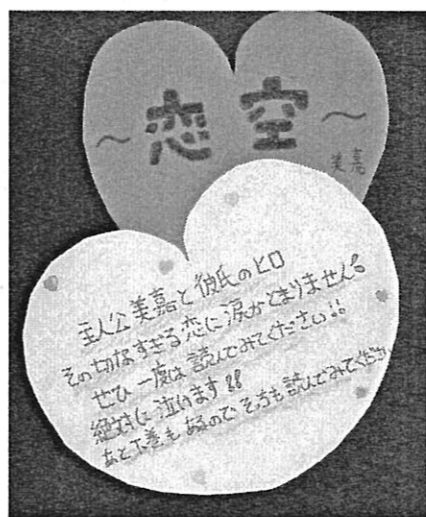 ～恋空～
美嘉
主人公美嘉と彼氏のヒロ
その切なすぎる恋に涙がとまりません!
ぜひ一度は読んでみてください!!
絶対に泣けます!!
あと下巻もあるのでそ方も読んでみてくださ